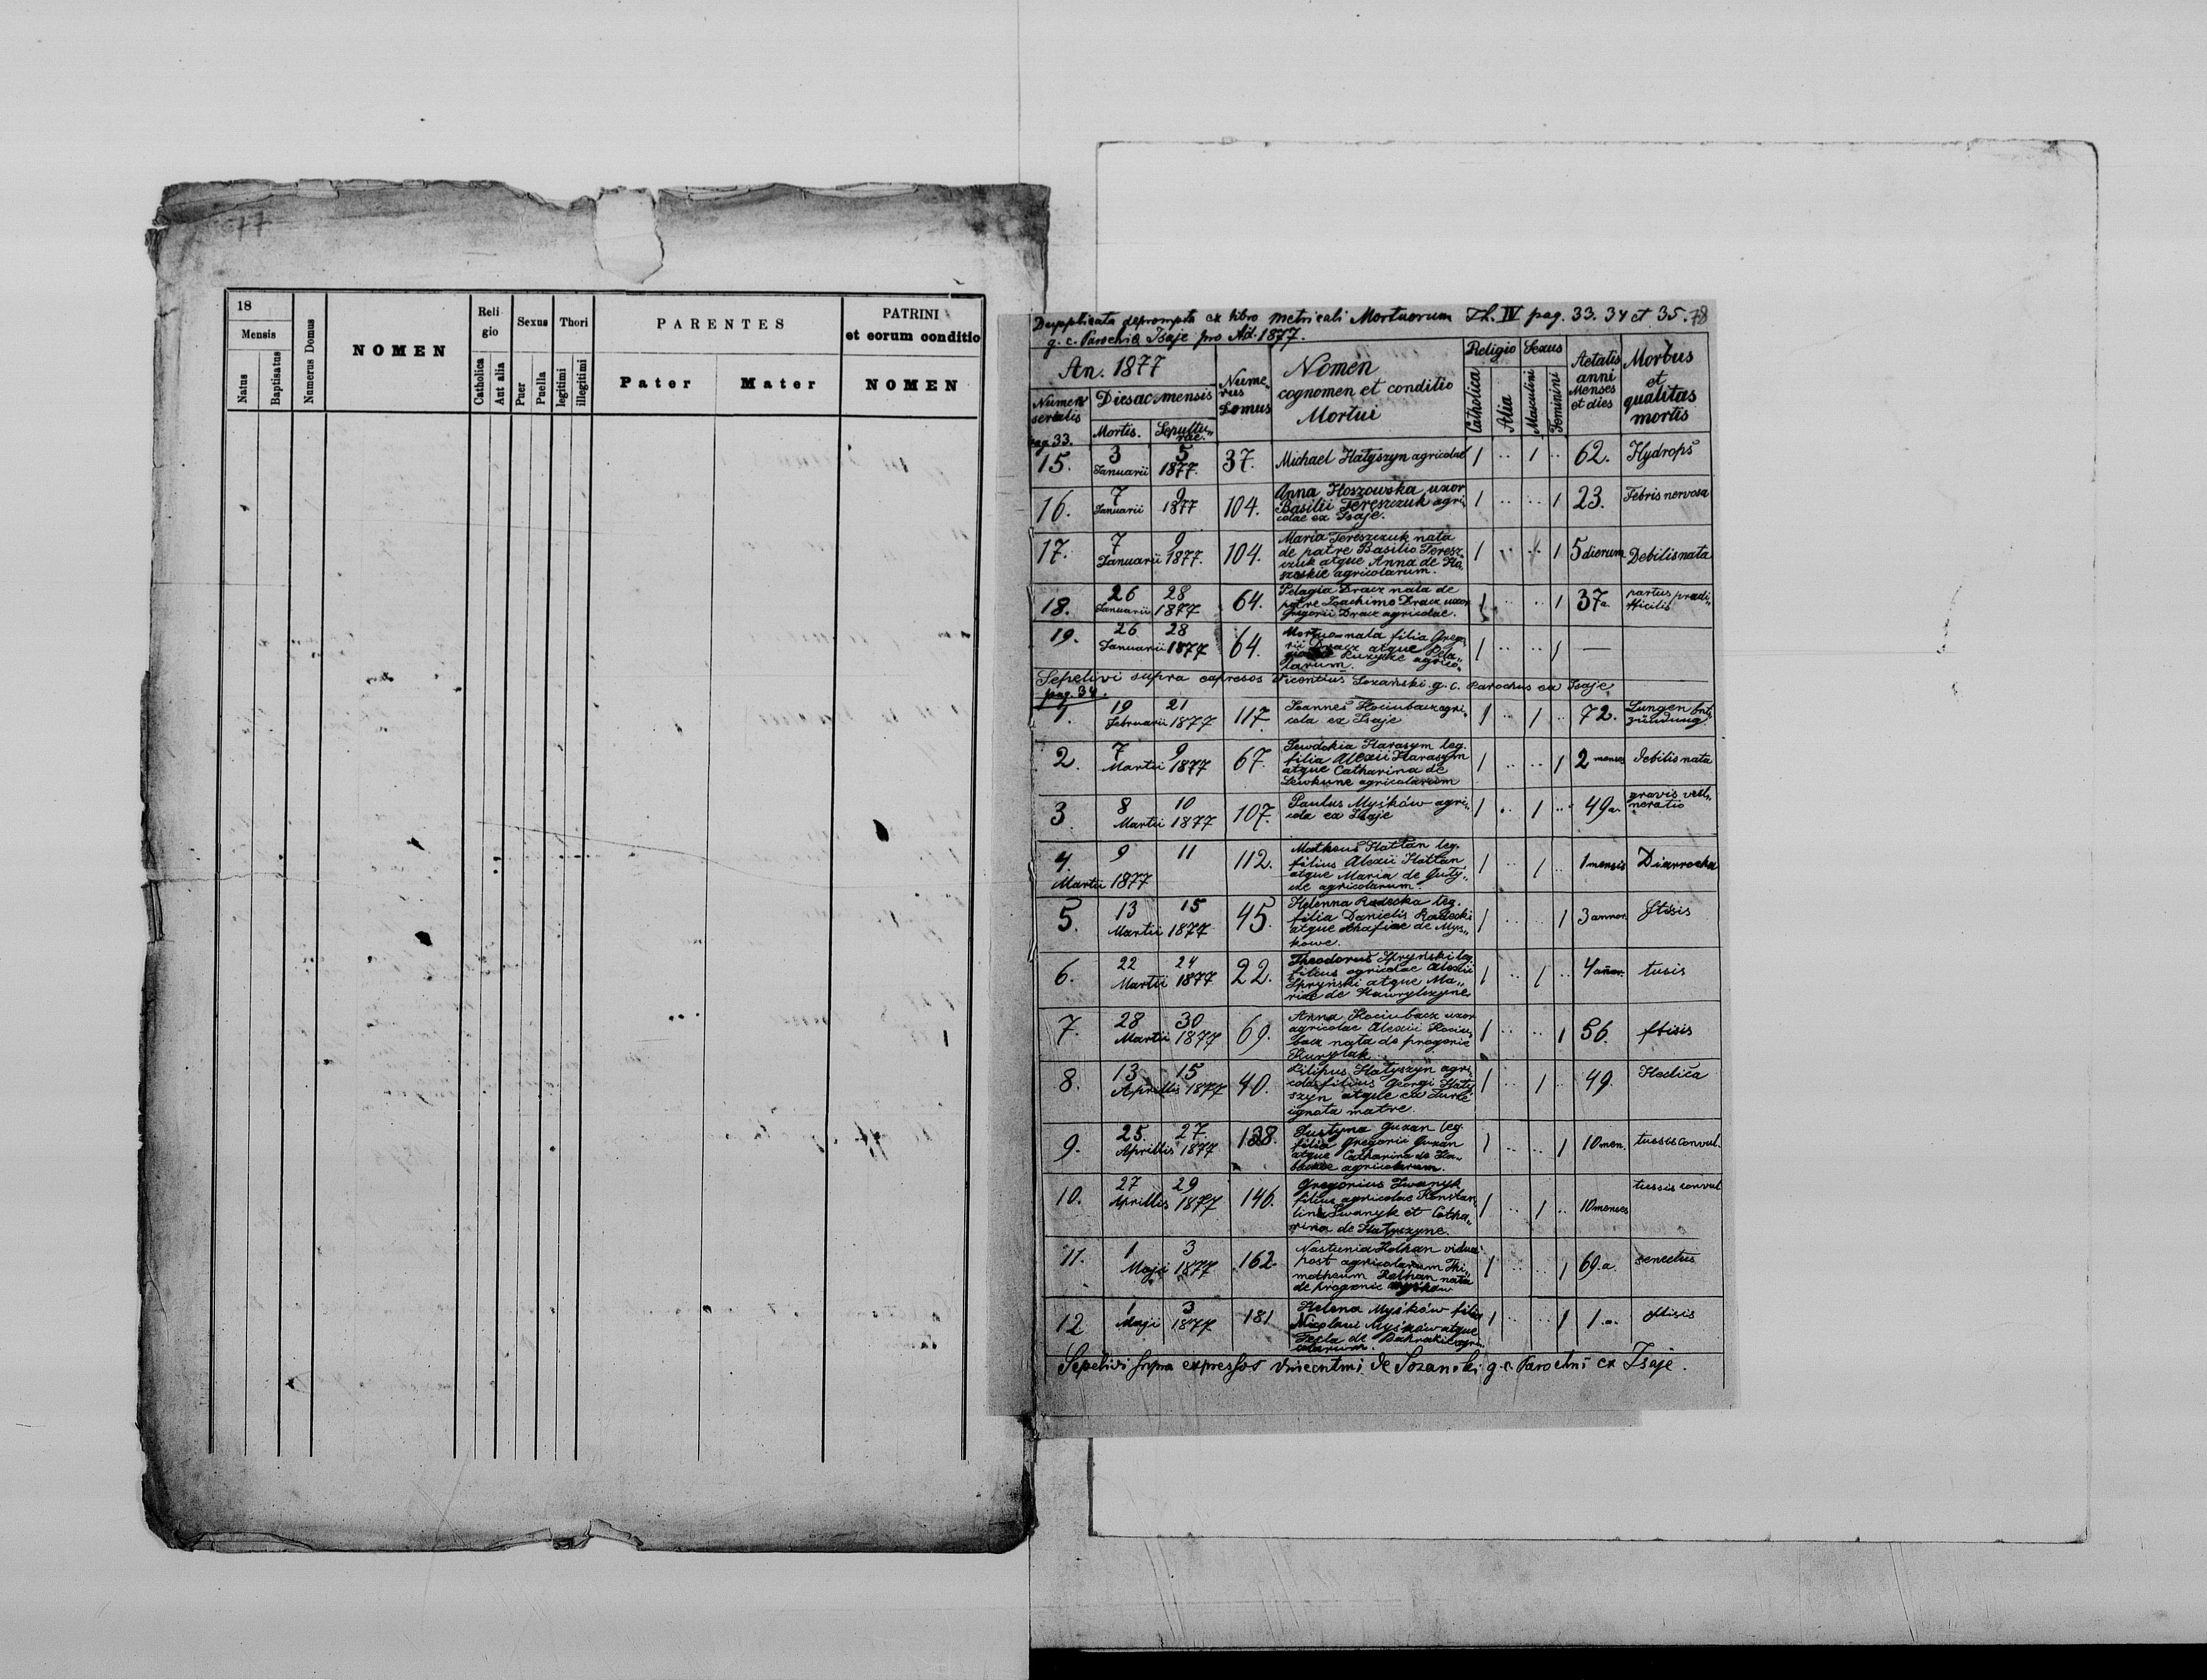 77
18
Mensis
Natus
Baptisatus
Numerus Domus
NOMEN
Reli-
gio
Catholica
Aut alia
Sexus
Puer
Puella
Thori
legitimi
illegitimi
PARENTES
Pater
Mater
PATRINI
et eorum conditio
NOMEN
Dupplicata deprompta ex libro metricali Mortuorum Th. IV pag. 33. 34 et 35. 78
g. c. Parochiæ Isaje pro Ad. 1877.
An. 1877
Numer
serialis
Dies ac mensis
Mortis.
Sepultu„
rae.
Nume„
rus
Domus
Nomen
cognomen et conditio
Mortui
Religio
Catholica
Alia
Sexus
Masculini
Feminini
Aetatis
anni
Menses
et dies
Morbus
et
qualitas
mortis
pag 33.
15. 3 Januarii 5 1877. 37. Michael Hatyszyn agricolae 1 .. 1 .. 62. Hydrops
16. 7 Januarii 9 1877 104. Anna Hoszowska uxor
Basilii Tereszczuk agri„
colae ex Isaje. 1 .. .. 1 23. Febris nervosa
17. 7 Januarii 9 1877. 104. Maria Tereszczuk nata
de patre Basilio Teresz„
czuk atque Anna de Ho„
agricolarum. 1 .. .. 1 5 dierum Debilis nata
18. 26 Januarii 28 1877 64. Pelagia Dracz nata de
patre Joachimo Dracz uxor
Gregorii Dracz agricolae. 1 .. .. 1 37 a. partus
19. 26 Januarii 28 1877 64. Mortuo nata filia Grego„
rii Dracz atque Pela„
agrico„
larum. 1 .. .. 1 —
Sepelivi supra expresos Vicentius Lozański g. c. Parochus ex Isaje
pag. 34.
1. 19 Februarii 21 1877 117 Joannes Kociubacz agri„
cola ex Isaje 1 .. 1 .. 72. Lungen Ent„
zündung
2. 7 Martii 9 1877 67. Jewdokia Harasym leg.
filia Alexii Harasym
atque Catharina de
agricolarum 1 .. .. 1 2 menses debilis nata
3. 8 Martii 10 1877 107. Paulus Myśków agri„
cola ex Isaje 1 .. 1 .. 49 a. gravis vul„
neratio
4. 9 Martii 11 1877 112. Matheus Hattan leg.
filius Alexii Hattan
atque Maria de
agricolarum. 1 .. 1 .. 1 mensis Diarrochea
5. 13 Martii 15 1877 45. Helenna Radecka leg.
filia Danielis Radecki
atque de Mys„
kowe. 1 .. .. 1 3 annor. ftisis
6. 22 Martii 24 1877 22. Theodorus Spryński leg.
filius agricolae Alexii
Spryński atque Ma„
riae de 1 .. 1 .. 4 añor. tusis
7. 28 Martii 30 1877 69. Anna Kociubacz uxor
agricolae Alexii Kociu„
bacz nata de progenie
Kurylak 1 .. .. 1 56. ftisis
8. 13 Aprillis 15 1877 40. Filipus Hatyszyn agri„
cola filius Georgi Haty„
szyn atque ex Turké
ignota matre. 1 .. 1 .. 49. Hectica
9. 25. Aprillis 27 1877 138. Justyna Guzan leg.
filia Gregorii Guzan
atque Catharina de
agricolarum. 1 .. .. 1 10 men. tussis convul.
10. 27 Aprillis 29 1877. 146. Gregorius Iwanyk
filius agricolae Konstan„
tini Iwanyk et Catha„
rina de Hatyszyne. 1 .. 1 .. 10 menses tussis convul
11. 1 Maji 3 1877 162. Nastunia Holhan vidua
post agricolarum Thi„
motheum Holhan nata
de progenie Myśków 1 .. .. 1 69. a. senectus
12 1 Maji 3 1877 181 Helena Myśków filia
Nicolaui Myśków atque
Tekla de agri„
colarum. 1 .. .. 1 1. a. ftisis
Sepelivi supra expressos Vincentius de Lozanski g. c. Parochus ex Isaje.